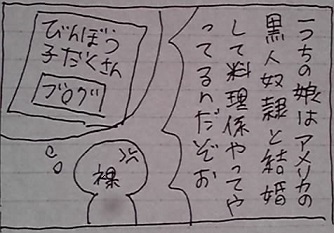 一つちの娘はアメリカの
黒人奴隷と結婚
して料理係やってや
ってるんだぞお
びんぼう
子だくさん
ブログ
裸